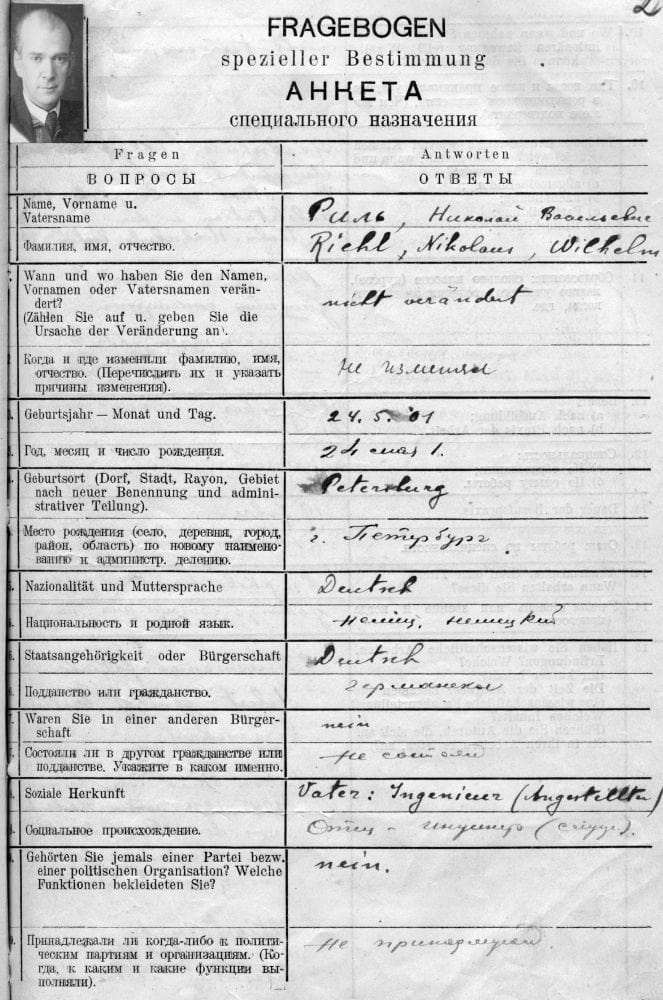 FRAGEBOGEN
spezieller Bestimmung
АНКЕТА
специального назначения
Fragen
ВОПРОСЫ
Antworten
ОТВЕТЫ
Name, Vorname u.
Vatersname
Риль, Николай Васильевич
Фамилия, имя, отчество.
Riehl, Nikolaus, Wilhelm
Wann und wo haben Sie den Namen,
Vornamen oder Vatersnamen verän-
dert?
(Zählen Sie auf u. geben Sie die
Ursache der Veränderung an).
nicht verändert
Когда и где изменили фамилию, имя,
отчество. (Перечислить их и указать
причины изменения).
Не изменял
Geburtsjahr — Monat und Tag.
24. 5. 01
Год, месяц и число рождения.
24 мая 1.
Geburtsort (Dorf, Stadt, Rayon, Gebiet
nach neuer Benennung und admini-
strativer Teilung).
Petersburg
Место рождения (село, деревня, город,
район, область) по новому наимено-
ванию и администр. делению.
г. Петербург
Nazionalität und Muttersprache
Deutsch
Национальность и родной язык.
немец, немецкий
Staatsangehörigkeit oder Bürgerschaft
Deutsch
Подданство или гражданство.
германское
Waren Sie in einer anderen Bürger-
schaft
nein
Состояли ли в другом гражданстве или
подданстве. Укажите в каком именно.
не состоял
Soziale Herkunft
Vater: Ingenieur (Angestellter)
Социальное происхождение.
Отец - инженер
Gehörten Sie jemals einer Partei bezw.
einer politischen Organisation? Welche
Funktionen bekleideten Sie?
nein.
Принадлежали ли когда-либо к полити-
ческим партиям и организациям. (Ко-
гда, к каким и какие функции вы-
полняли).
не принадлежал